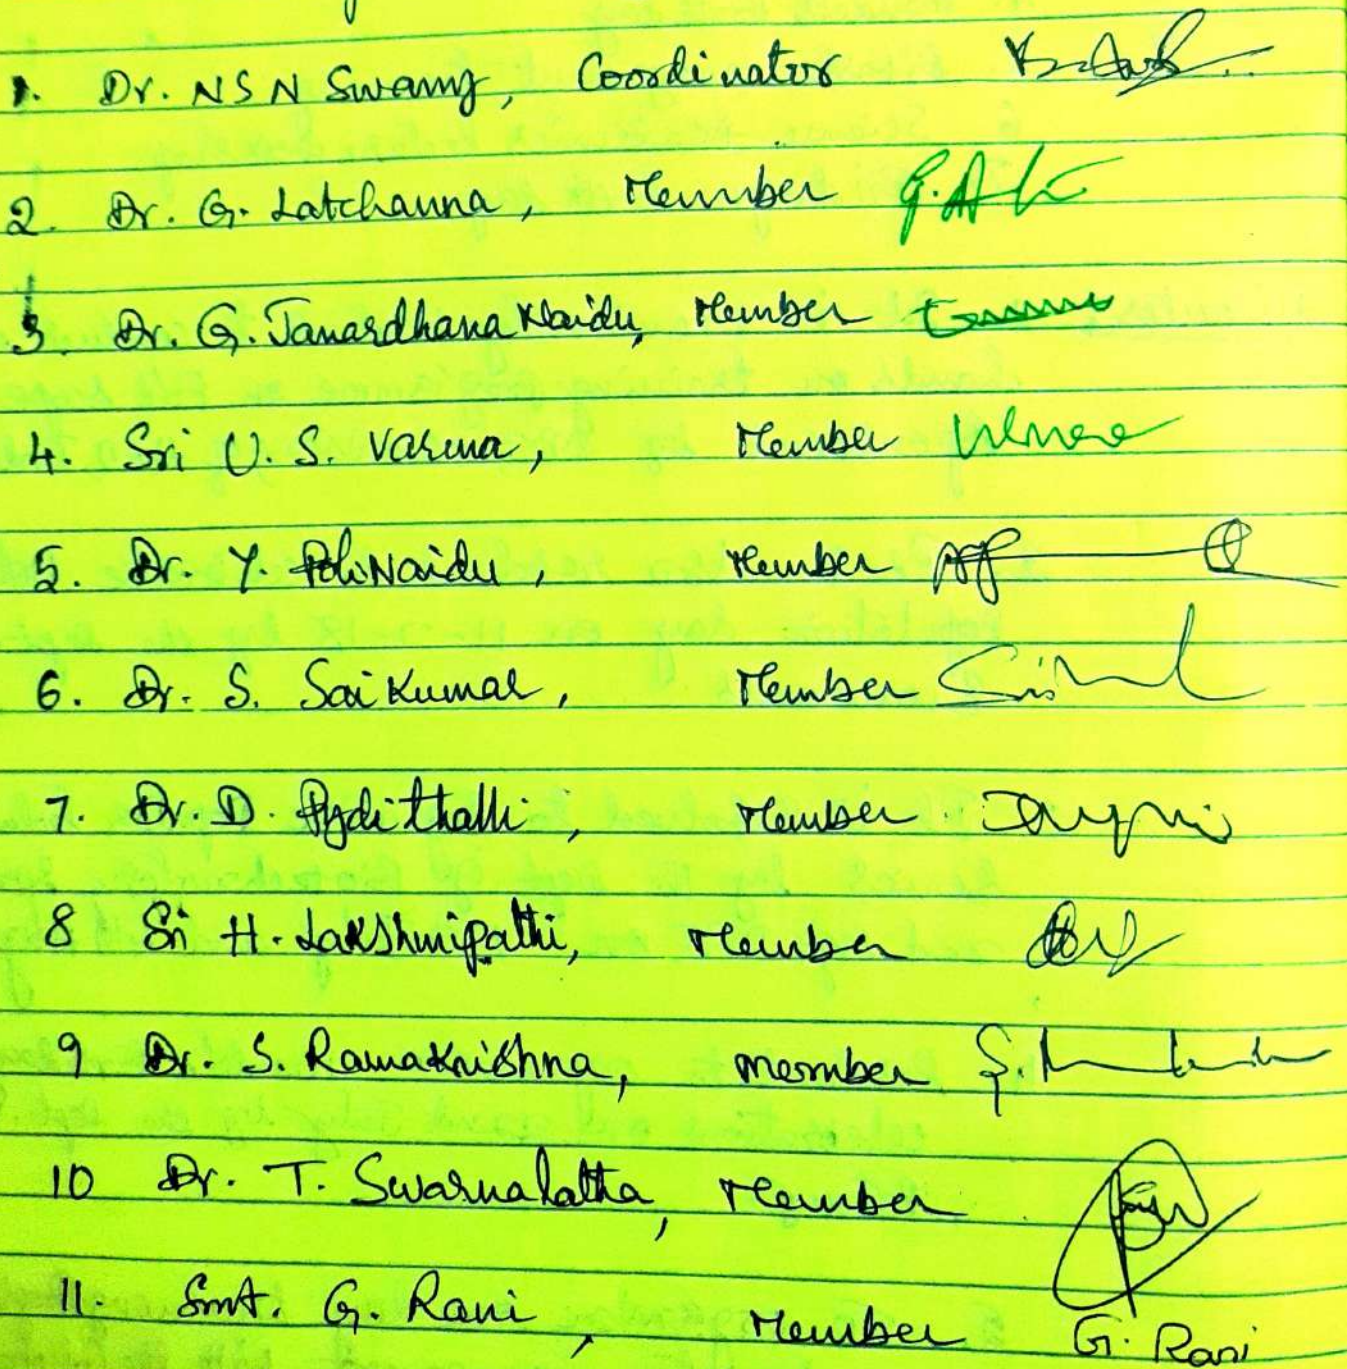 1. Dr. NSN Swamy, Coordinator
2. Dr. G. Latchanna, Member
3. Dr. G. Janardhana Naidu, Member
4. Sri U. S. Varma, Member
5. Dr. Y. PoliNaidu, Member
6. Dr. S. Sai Kumar, Member
7. Dr. D. Pydithalli, Member
8 Sri H. Lakshmipathi, Member
9 Dr. S. Ramakrishna, member
10 Dr. T. Swarnalatha, Member
11. Smt. G. Rani, Member G. Rani